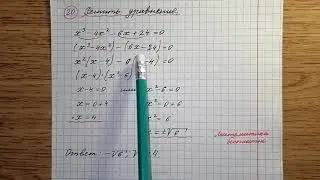 20) Решить уравнение.
x³ - 4x² - 6x + 24 = 0
(x³ - 4x²) - (6x - 24) = 0
x²(x - 4) - 6( - 4) = 0
(x - 4)·(x² - 6) = 0
x - 4 = 0 или x² - 6 = 0
x = 0 + 4 x² = 0 + 6
x = 4 x² = 6
= ±√6
Ответ: -√6; √ 4.
математика
бесплатно